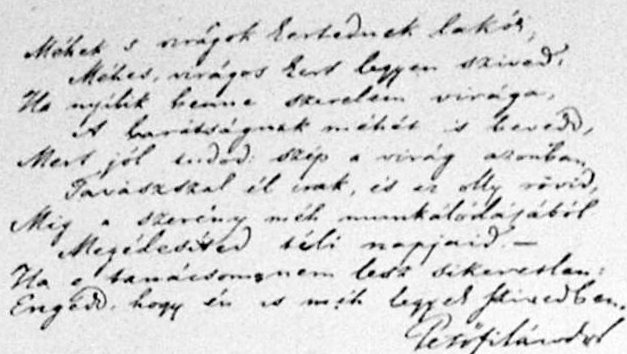 Méhek s virágok kertednek lakói,
Méhes, virágos kert legyen szived.
Ha nyílik benne szerelem virága,
A barátságnak méhét is bevedd,
Mert jól tudod: szép a virág azonban
Tavaszszal él csak, és ez olly rövid,
Mig a szerény méh munkálódájából
Megédesíted téli napjaid. —
Ha e tanácsom nem lesz sikeretlen:
Engedd, hogy én is méh legyek szivedben.
Petőfi Sándor